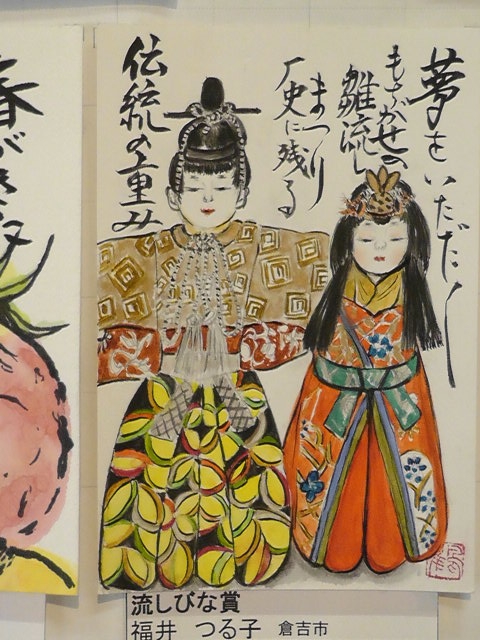 夢をいただく
もちがせの
雛流し
まつり
厂史に残る
伝統の重み
春がきた
流しびな賞
福井 つる子 倉吉市